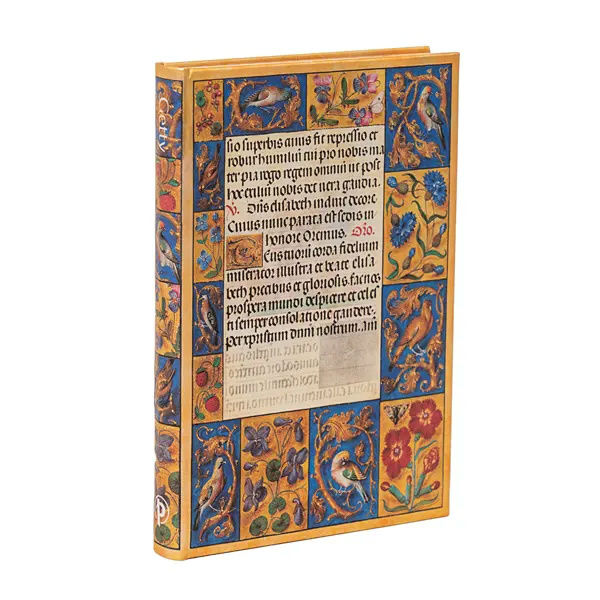 Getty
sio superbis cuius fit repressio et
robur humiliū cui pio nobis ma
ter pia rogo regem omniū ut post
hoc exiliū nobis det vera gaudia.
V. Dn̄s elisabeth induit decore
Cuius nunc parata est sedis in
honore Oremus. Oro.
Deus tuorū corda fidelium
miserator illustra et beate elisa
beth precibus et gloriosis fac nos
prospera mundi despicere et celes
ti semper consolatione gaudere.
per xpistum dnm̄ nostrum. am̄